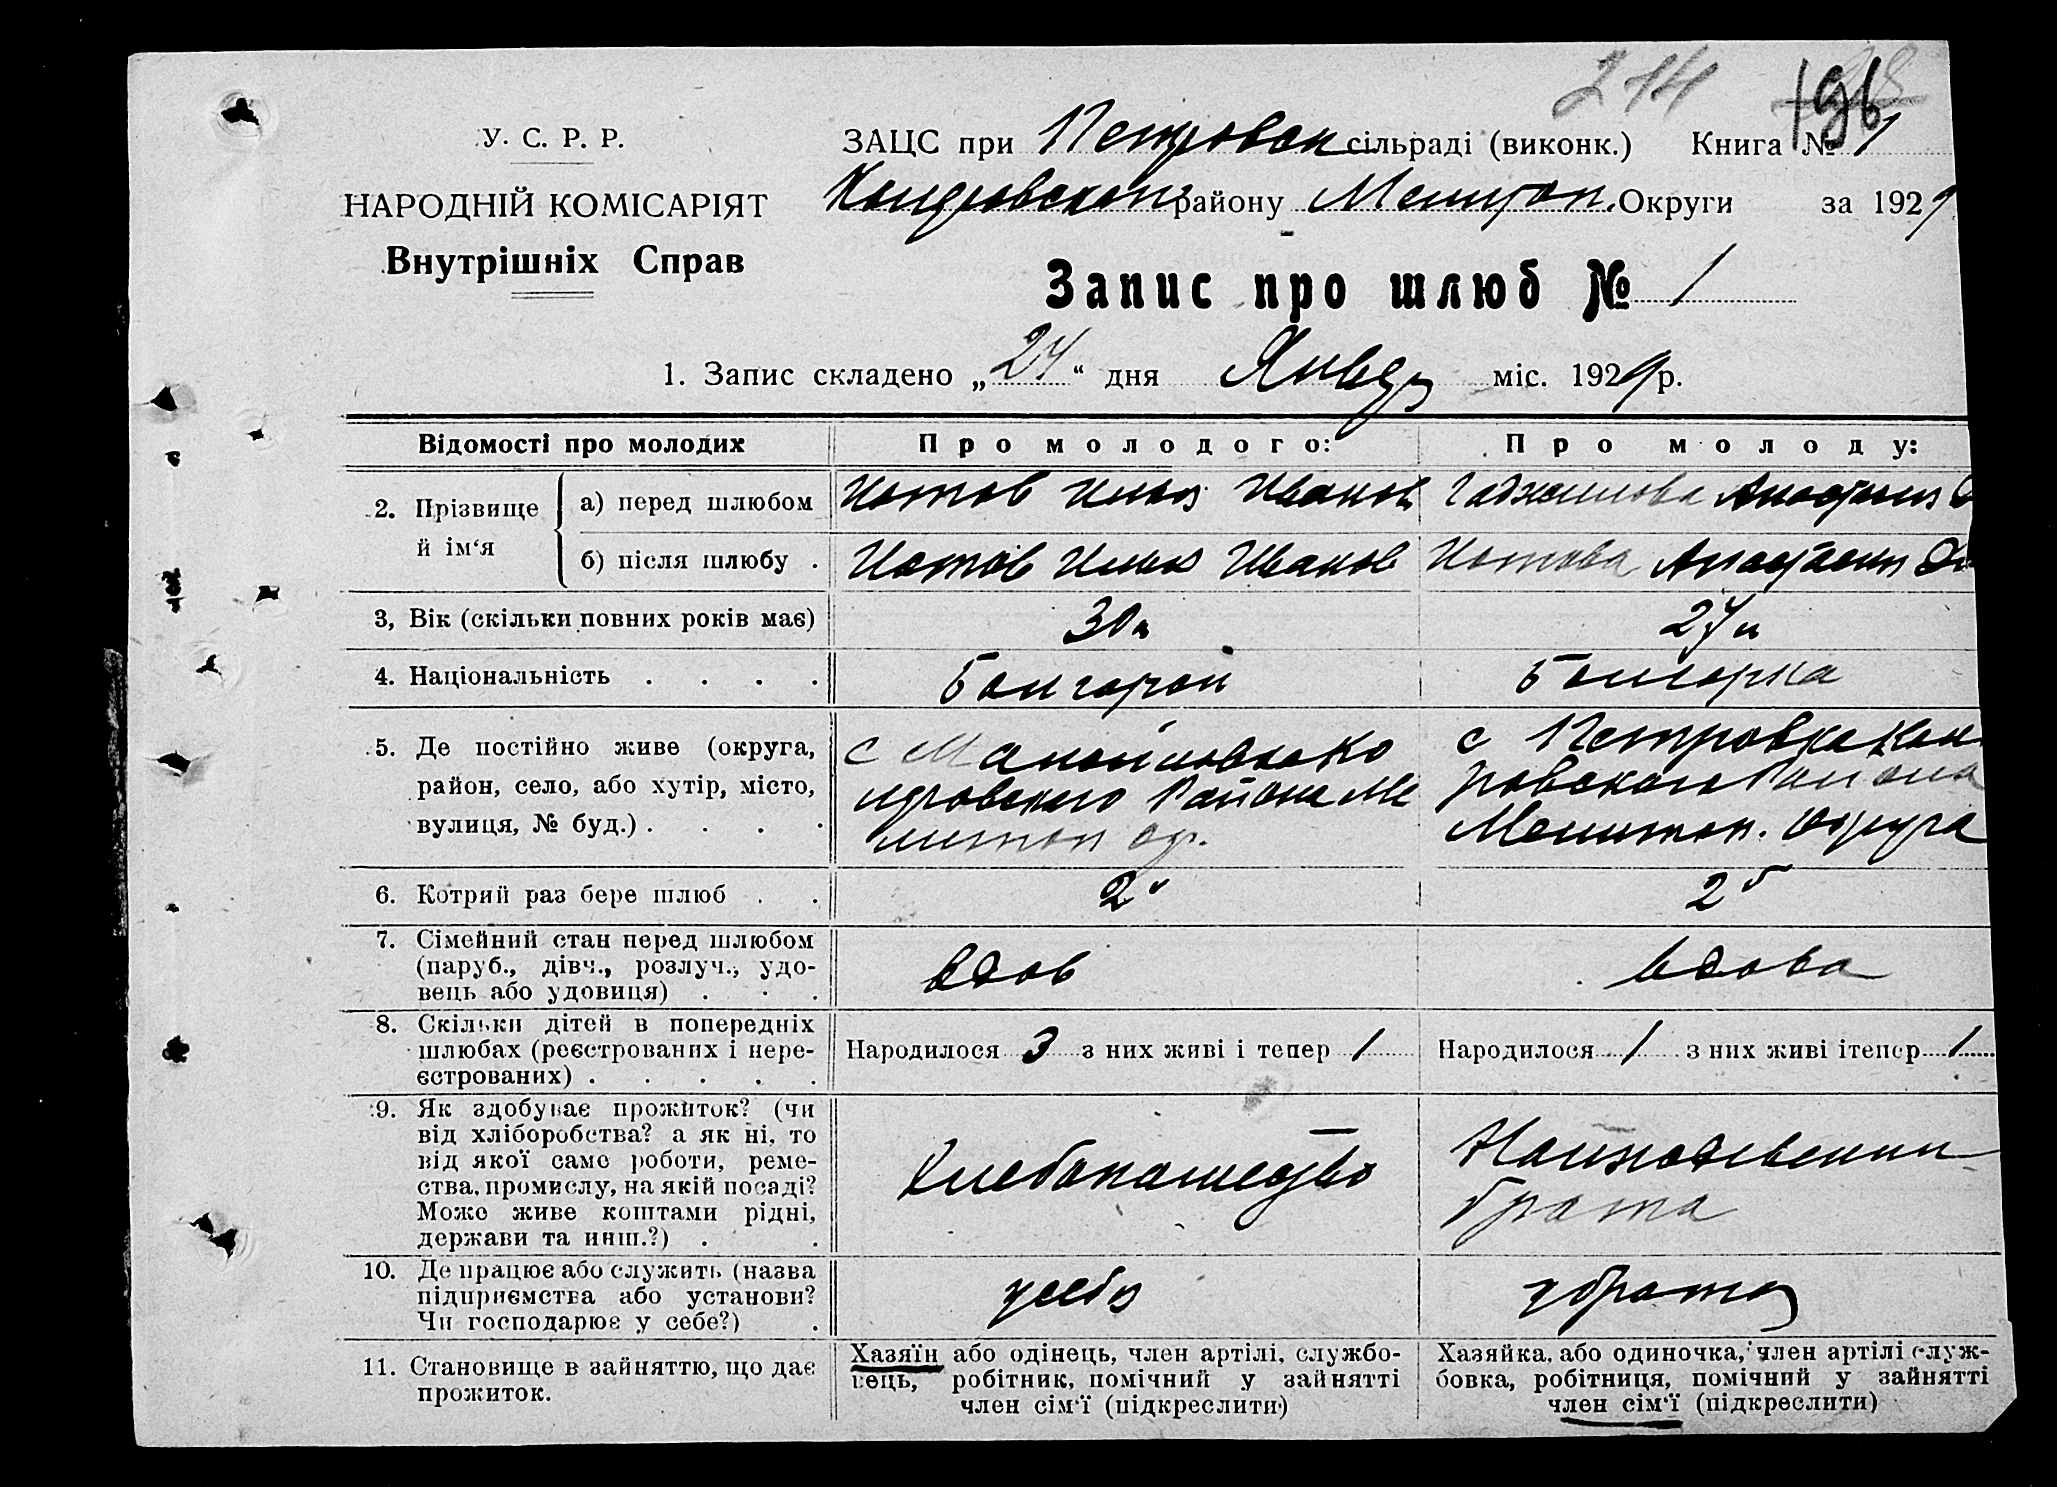 214 196
У. С. Р. Р.
НАРОДНІЙ КОМІСАРІЯТ
Внутрішніх Справ
ЗАЦС при Петровск сільраді (виконк.) Книга № 1
району Мелитоп. Округи за 1929
Запис про шлюб № 1
1. Запис складено „24“ дня Январ міс. 1929 р.
Відомості про молодих Про молодого: Про молоду:
2. Прізвище й ім‘я
а) перед шлюбом Котов Илья Иванов Анастасия
б) після шлюбу . Котов Илья Иванов Котова Анастасия
3, Вік (скільки повних років має) 30 л 27 л
4. Національність . . . . Болгарин Болгарка
5. Де постійно живе (округа,
район, село, або хутір, місто,
вулиця, № буд.) . . . .
с Манойловка Ко
ндровского Района Ме
литоп ок.
с Петровка Кон
дровского Района
Мелитоп. Округа
6. Котрий раз бере шлюб . . 2й 2й
7. Сімейний стан перед шлюбом
(паруб., дівч., розлуч., удо-
вець або удовиця) . . .
вдов вдова
8. Скільки дітей в попередніх
шлюбах (реєстрованих і нере-
єстрованих) . . . . .
Народилося 3 з них живі і тепер 1
Народилося 1 з них живі ітепер 1
9. Як здобуває прожиток? (чи
від хліборобства? а як ні, то
від якої саме роботи, реме-
ства, промислу, на якій посаді?
Може живе коштами рідні,
держави та инш.?) . .
Хлебопашество
На иждивении
брата
10. Де працює або служить (назва
підприємства або установи?
Чи господарює у себе?) .
у себя у брата
11. Становище в зайняттю, що дає
прожиток.
Хазяїн або одінець, член артілі, службо-
вець, робітник, помічний у зайнятті
член сім‘ї (підкреслити)
Хазяйка, або одиночка, член артілі служ-
бовка, робітниця, помічний у зайнятті
член сім‘ї (підкреслити)